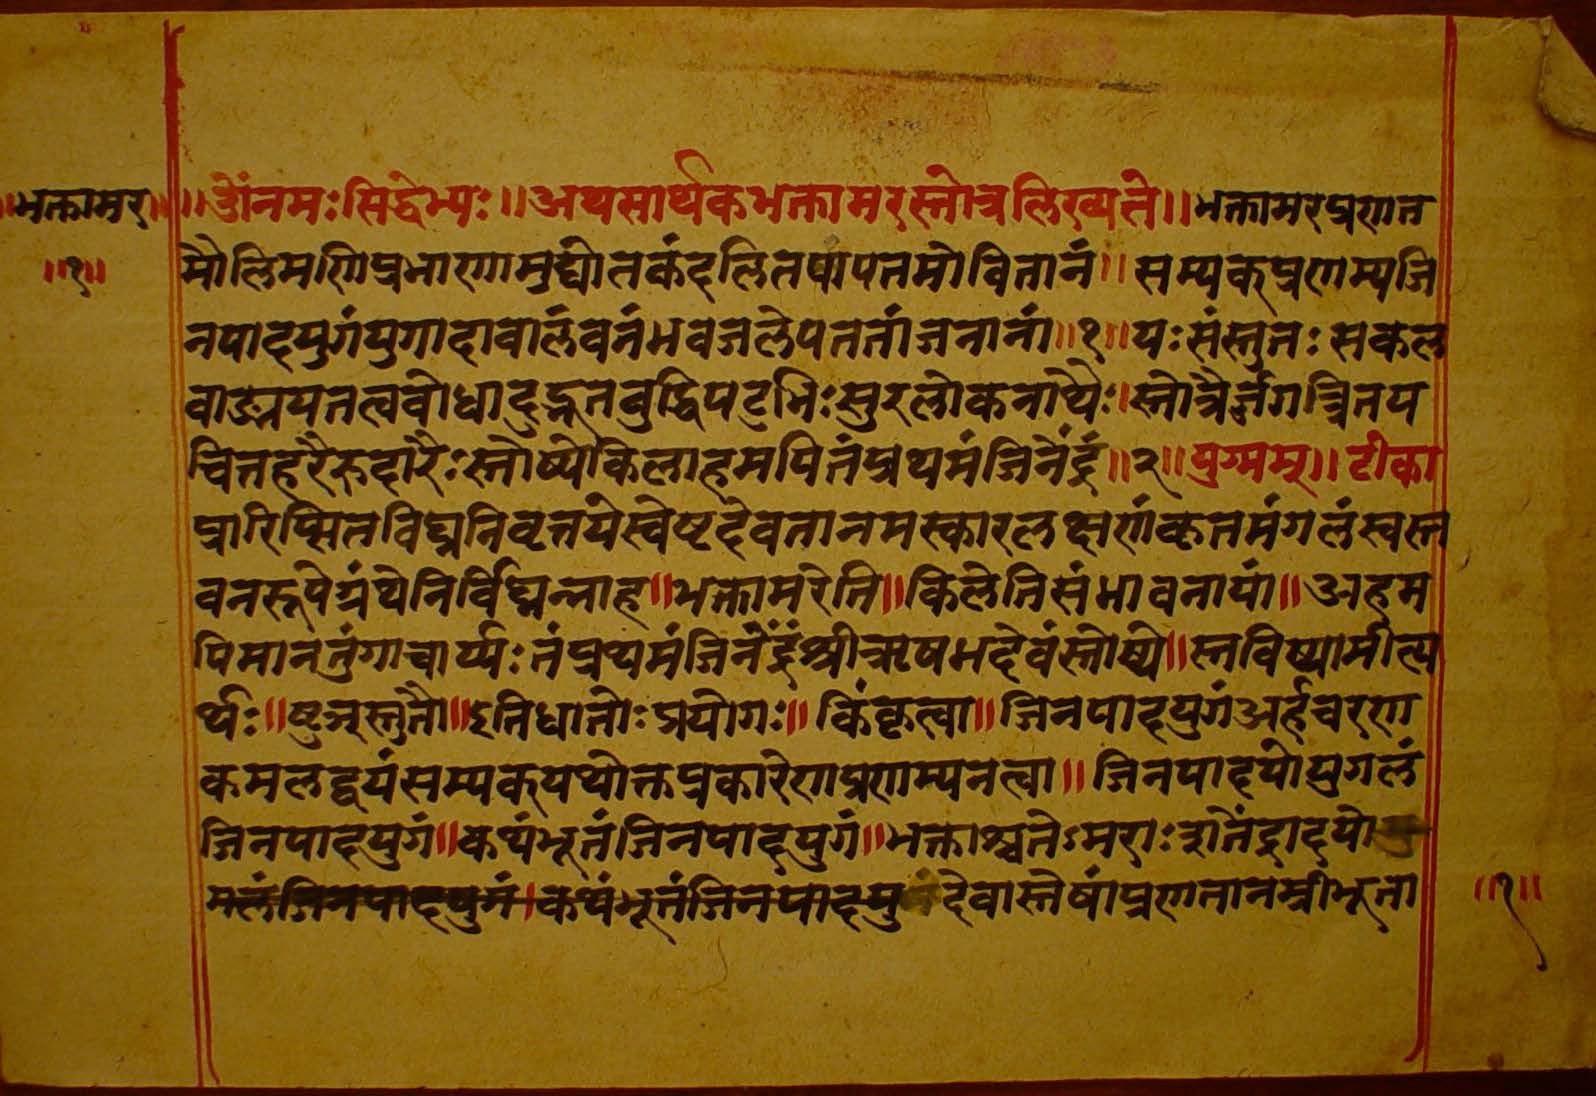 ॥भक्तामर॥ ॥ॐनमःसिद्धेभ्यः॥अथसार्थकभक्तामरस्तोत्रलिख्यते॥भक्तामरप्रणत
॥१॥ मौलिमणिप्रभाणामुद्योतकंदलितपापतमोवितानं॥सम्यक्प्रणम्यजि
नपादयुगंयुगादावालंवनंभवजलेपततांजनानां॥१॥यःसंस्तुतःसकल
वाङ्मयतत्ववोधादुद्भूतबुद्धिपटुभिःसुरलोकनाथैः।स्तोत्रैर्जगत्त्रितय
चित्तहरैरुदारैःस्तोष्येकिलाहमपितंप्रथमंजिनेंद्रं॥२॥युग्मम्॥टीका
प्रारिप्सितविघ्ननिवृत्तयेस्वेष्टदेवतानमस्कारलक्षणंकृतमंगलंस्वस्त
वनरूपेग्रंथेनिर्विघ्नन्नाह॥भक्तामरेति॥किलेतिसंभावनायां॥अहम
पिमानतुंगाचार्य्यःतंप्रथमंजिनेंद्रंश्रीऋषभदेवंस्तोष्ये॥स्तविष्यामीत्य
र्थः॥ष्टुञ्स्तुतौ॥इतिधातोःप्रयोगः॥किंकृत्वा॥जिनपादयुगंअर्हचरण
कमलद्वयंसम्यक्यथोक्तप्रकारेणप्रणम्यनत्वा॥जिनपादयोयुगलं
जिनपादयुगं॥कथंभूतंजिनपादयुगं॥भक्ताश्चतेऽमराःशतेंद्रादयो
गलंजिनपादयुगं।कथंभूतंजिनपादयुगंदेवास्तेषांप्रणतानंम्रीभूता ॥१॥